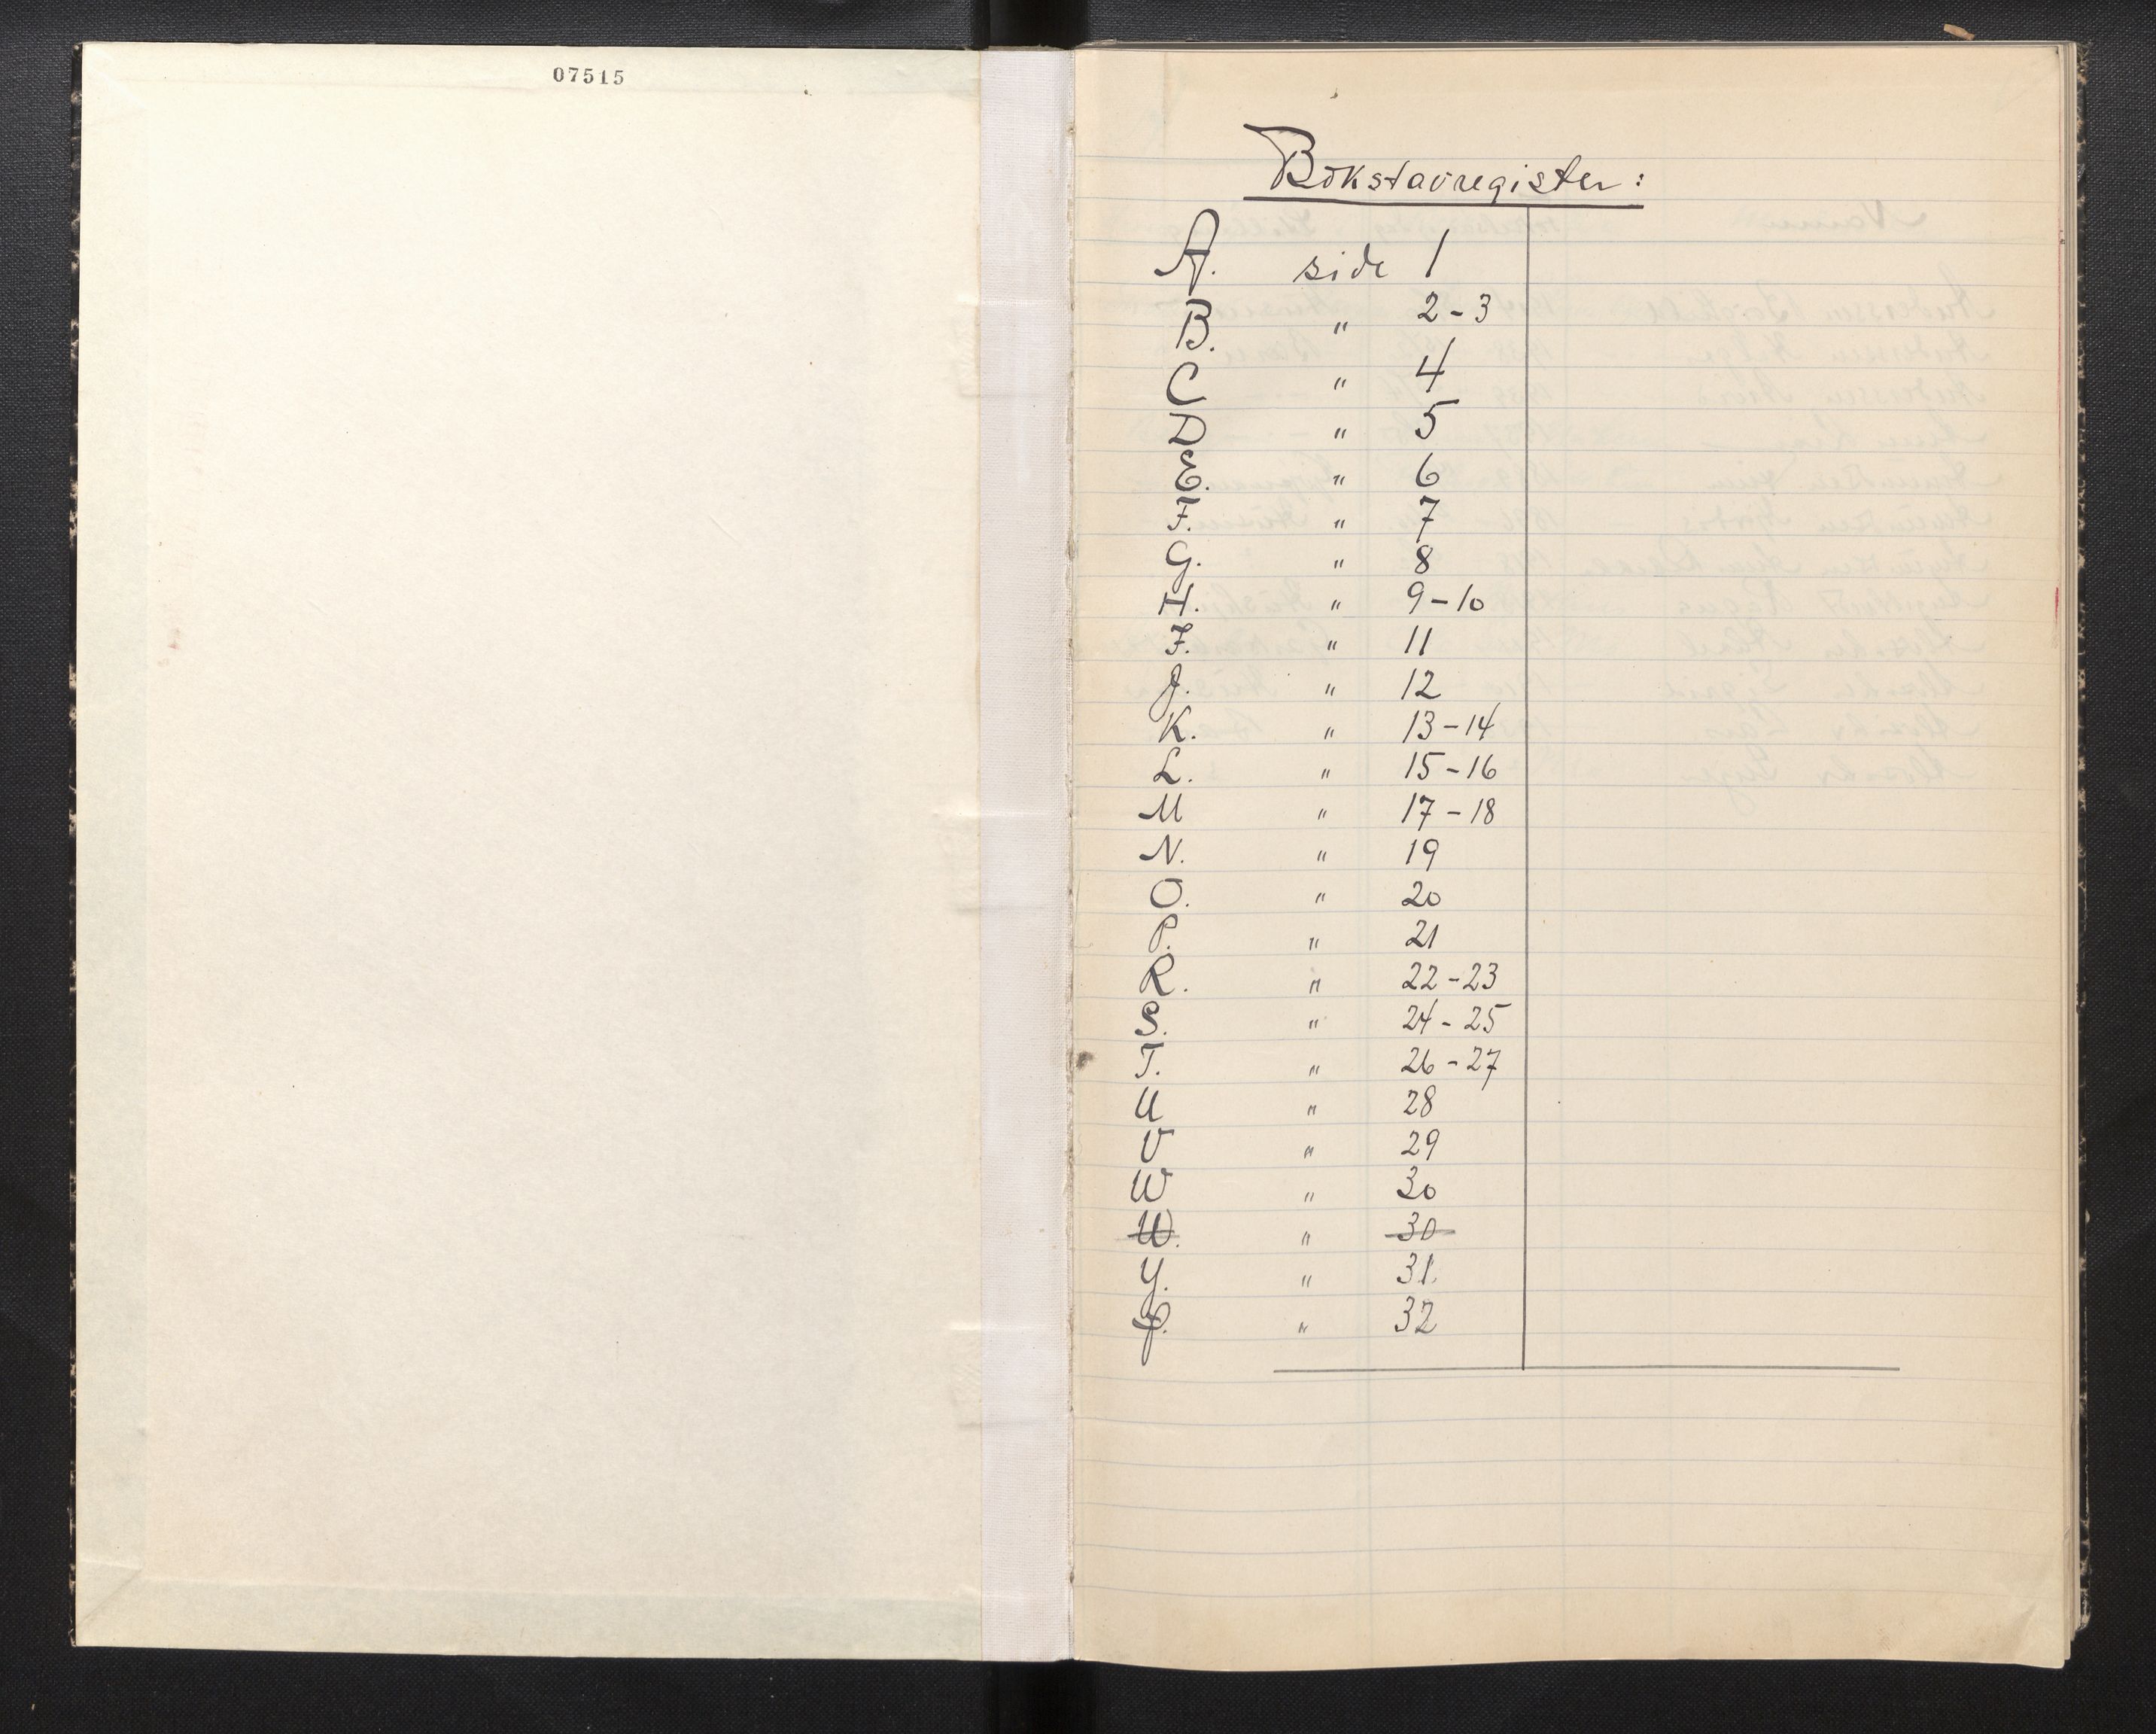 07515
Bokstavregister:
A. side 1
B. " 2-3
C " 4
D " 5
E. " 6
F. " 7
G. " 8
H. " 9-10
I. " 11
J. " 12
K. " 13-14
L. " 15-16
M " 17-18
N. " 19
O. " 20
P. " 21
R. " 22-23
S. " 24-25
T. " 26-27
U " 28
V " 29
W " 30
W. " 30
Y. " 31
Ø. " 32